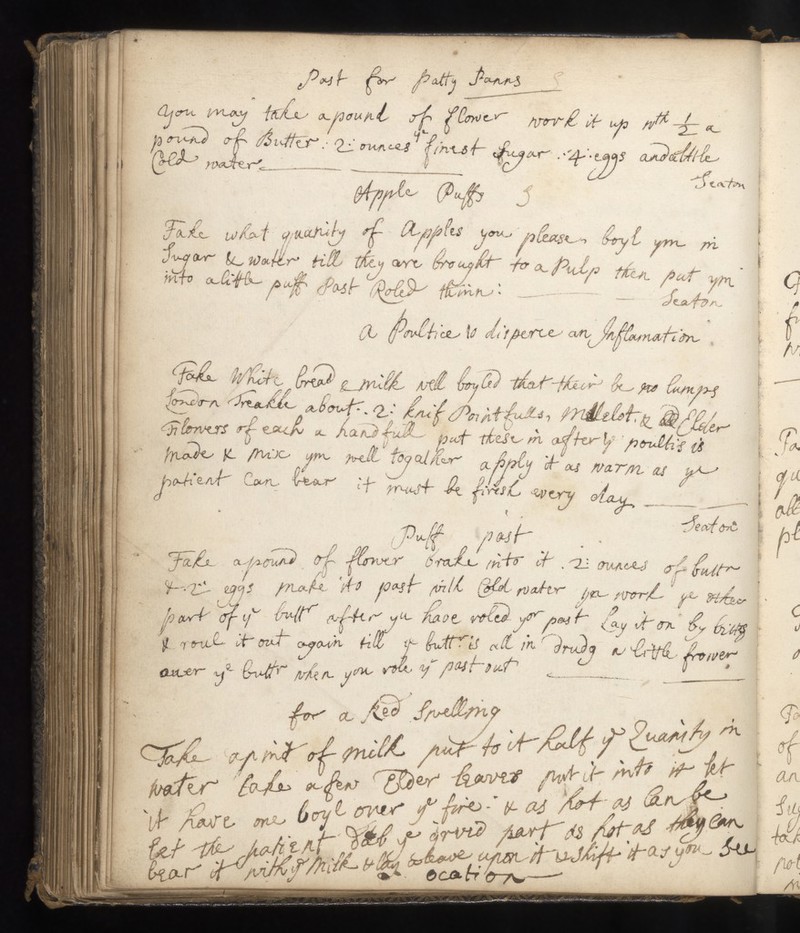 Past for Patty Panns
you may take a pound of flower work it up wth ½ a
pound of Butter : 2: ounces ye finest Sugar :4: eggs and a little
Cold water
Seaton
Apple Puffs
Take what quanity of Apples you please, boyl ym in
Sugar & water till they are brought to a Pulp then put ym
into a little puff Past Roled thinn:
Seaton
A Poultice to disperce an Inflamation
Take White bread & milk well boyled that their be no lumps
London Treakle about .2: knif Point fulls, Mellelot & Elder
Flowers of each a hand full put these in after ye poultis is
made & mix ym well togather apply it as warm as ye
patient Can bear it must be firesh every day
Seaton
Puff past
Take a pound of flower brake into it .2: ounces of buttr
& .2: eggs make itto past with Cold water yn work ye other
part of ye buttr after yu have roled yor past Lay it on by bitts
& roul it out again till ye buttr is all in drudg a little flower
auer ye buttr when you role ye past out
for a Red Swelling
Take a pint of milk put to it half ye Quanity in
water take a few Elder leaves put it into it let
it have one boyl over ye fire: & as hot as Can be
let the patient dab ye part as hot as they Can
bear it with ye Milk & lay a leave upon it & shift it as you See
ocation